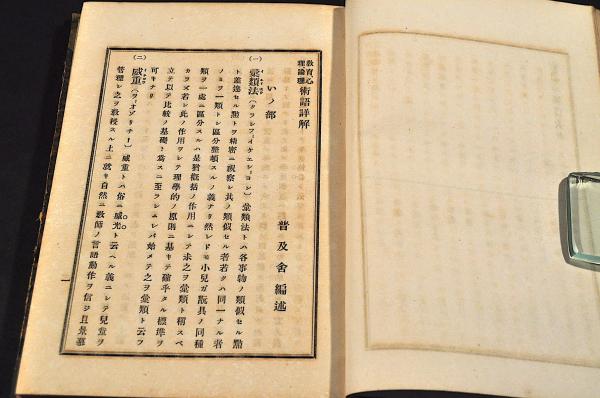 教育心
理論理 術語詳解
普及舍編述
いノ部
(一)
彙類法(クラシフ井ケーション)彙類法トハ各事物ノ類似セル點
ト差違セル點トヲ精密ニ視察シ其ノ類似セル者若クハ同一ナル者
ノミヲ一類トシ區分整頓スルノ義ナリ然レドモ小兒ガ玩具ノ同種
類ヲ一處ニ區分スルハ是猶概括ノ作用ニシテ未之ヲ彙類ト稱スベ
カラズ若シ此ノ作用ヲシテ理學的ノ原則ニ基キテ確乎タル標準ヲ
立テ以テ比較ノ基礎ト爲スニ至ラシムレバ始メテ之ヲ彙類ト云フ
可キナリ
(二)
威重(ヲーソリチー)威重トハ俗ニ威光ト云ヘル義ニシテ兒童ヲ
管理シ之ヲ教授スル上ニ就キ自然ニ教師ノ言語動作ヲ信ジ且景慕
一